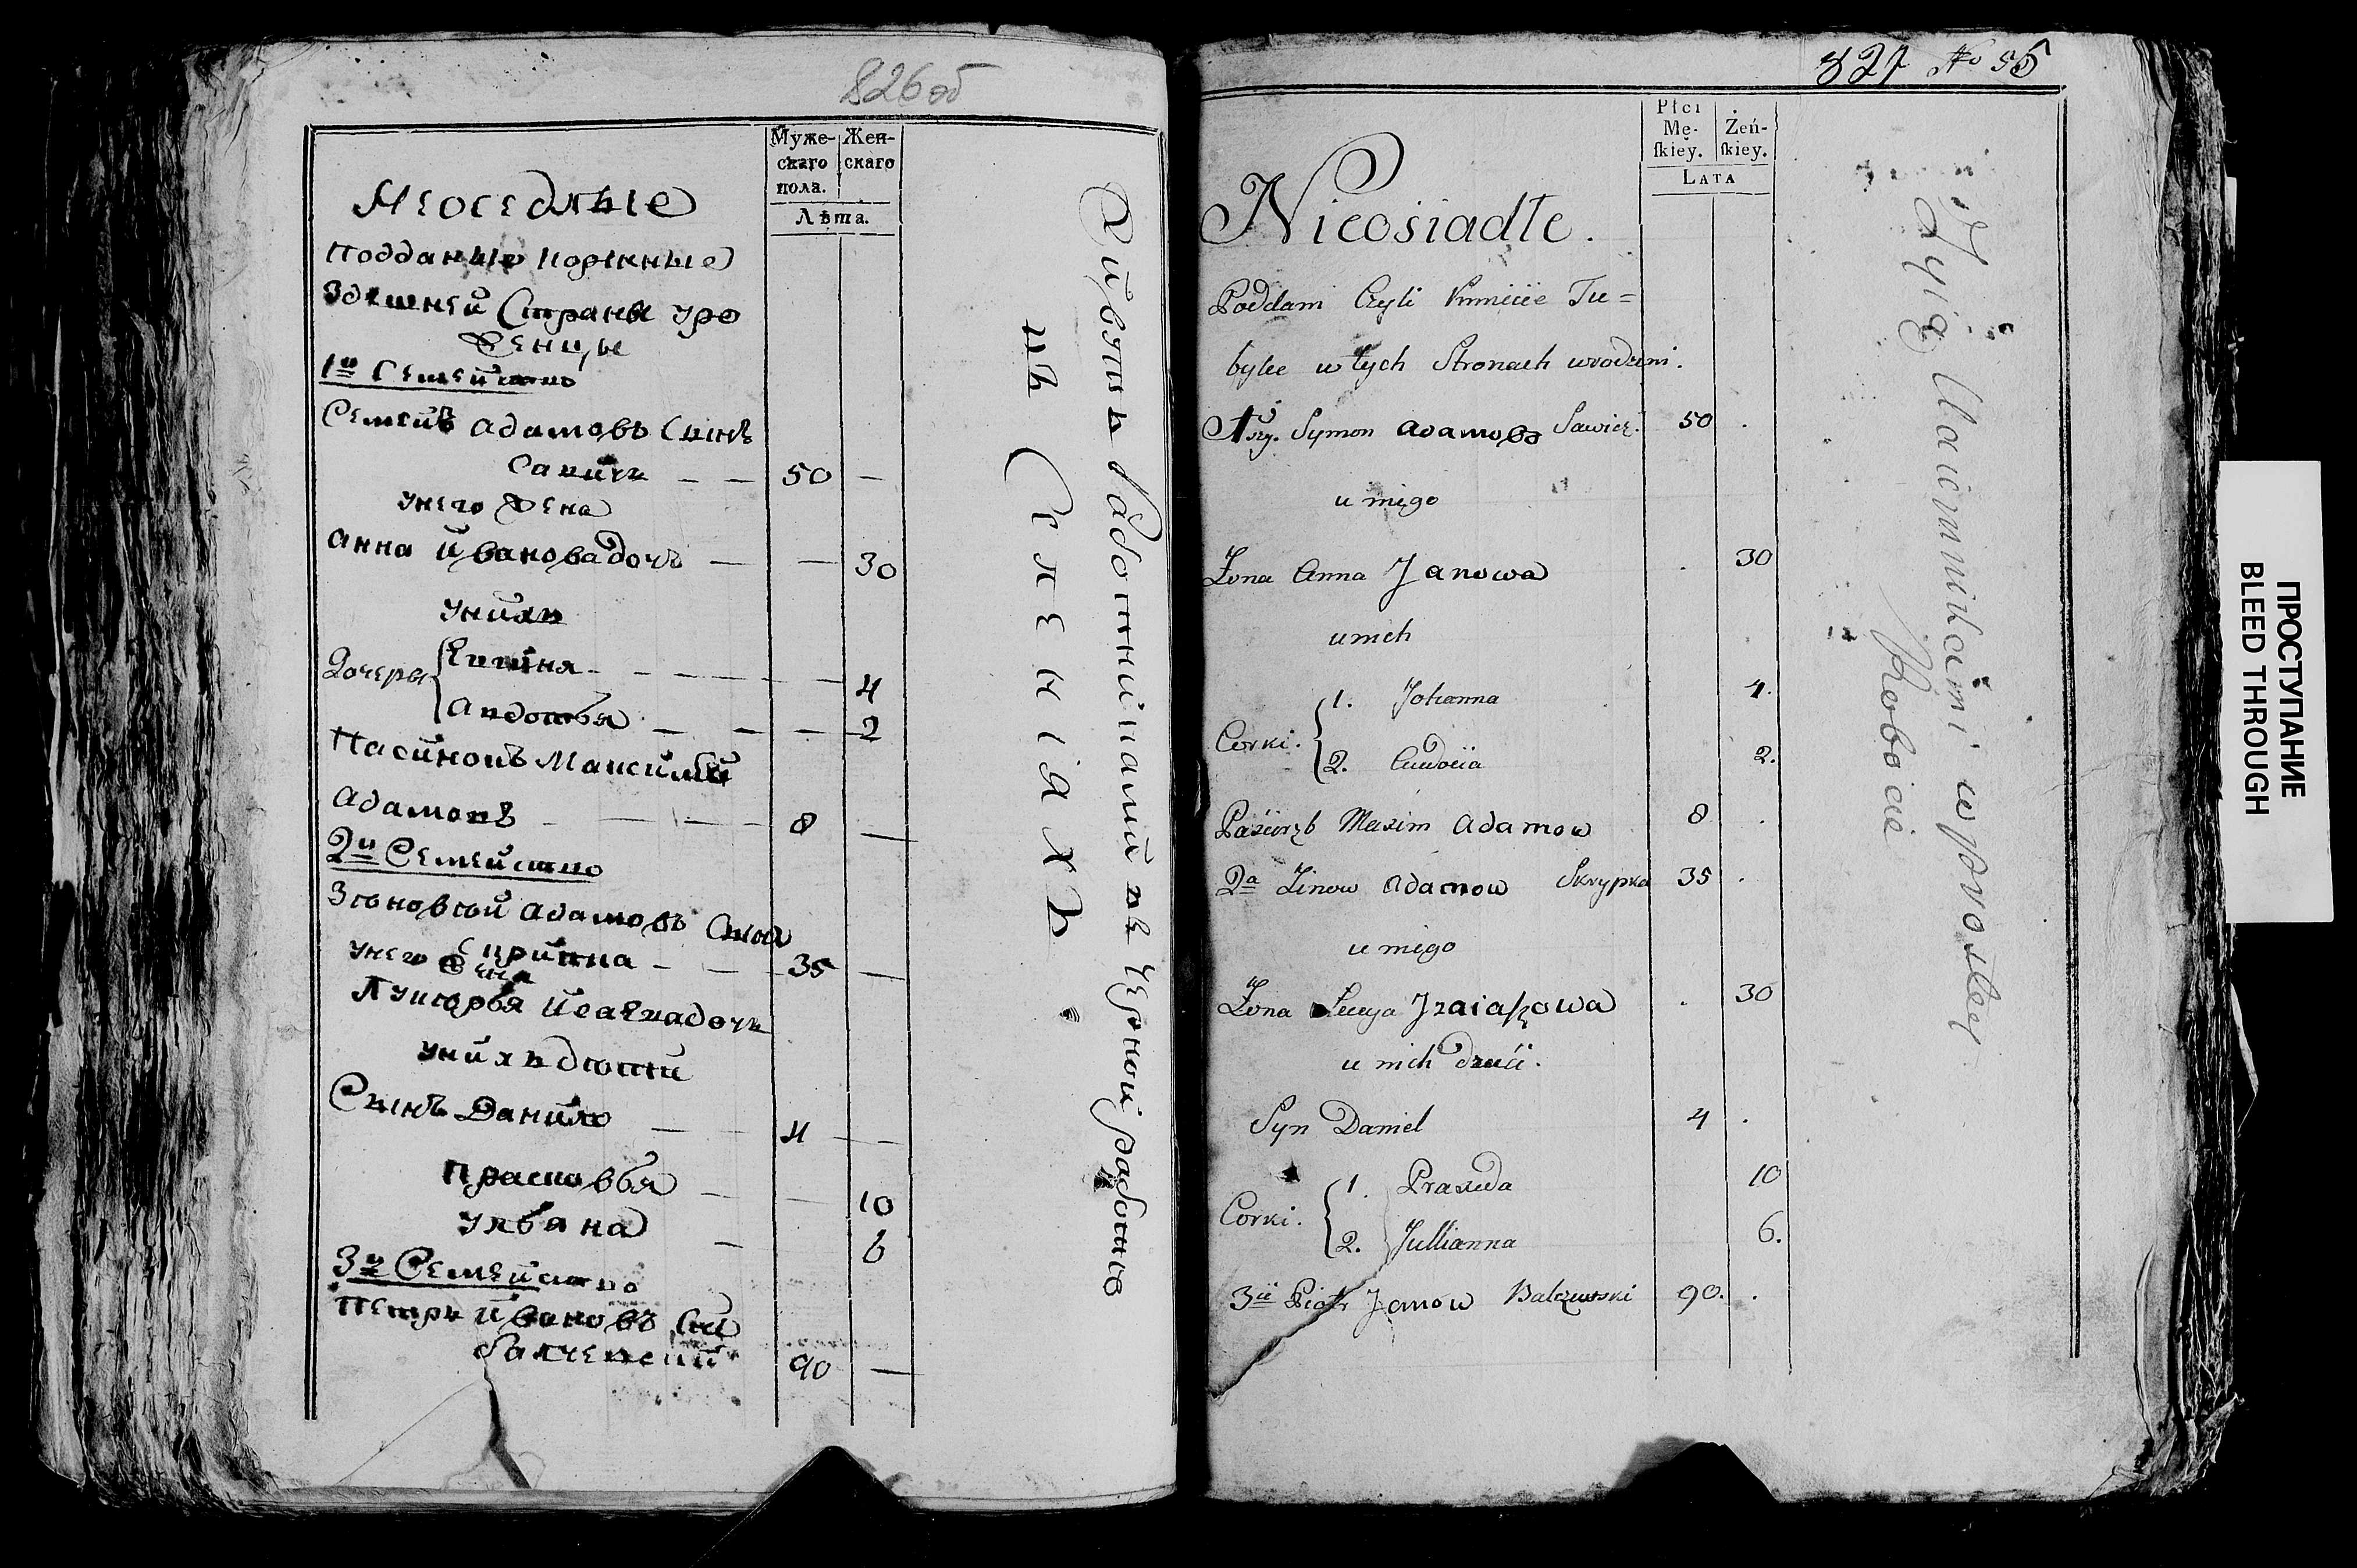 826 об
Муже-
скаго
пола.
Жен-
скаго
Лѣта.
Неоседлые
Подданные коренные
Здешней Страны уро
женцы
1е Семейство
Семенъ Адамовъ Сынъ
Савичъ — — 50 —
у него жена
Анна Ивановадочь — — 30
у нихъ
Дочеры
4
Авдотья — — — 2
Пасинокъ Максимъ
Адамовъ — — — 8 —
2е Семейство
Зѣновей Адамовъ Сынъ
Скрипка — — 35 —
у него жена
Лукерья дочь
у нихъ дети
Сынъ Данило — — 4 —
Прасковья — — 10
Ульяна — 6
3е Семейство
Петръ Ивановъ Сынъ
Балчевский 90 —
работниками въ черной работе
въ Селенияхъ
827 No 55
Płci
Mę-
ſkiey.
Żeń-
ſkiey.
LATA
Nieosiadłe.
Poddani Czyli Kmiecie Tu=
bylce w tych Stronach urodzeni.
1szy. Symon Adamow Sawicz. 50 .
u niego
Żona Anna Janowa . 30
u nich
Corki.
1. Johanna 4.
2. Ewdocia 2.
Pasierzb Maxim Adamow 8 .
2a Zinow Adamow Skrypka 35 .
u niego
Żona Lucya . 30
u nich dzieci.
Syn Daniel 4 .
Corki.
1. Praxeda 10
2. Jullianna 6.
3ci Piotr Janow Balczewski 90. .
Żyią w prostey
Robocie
ПРОСТУПАНИЕ
BLEED THROUGH